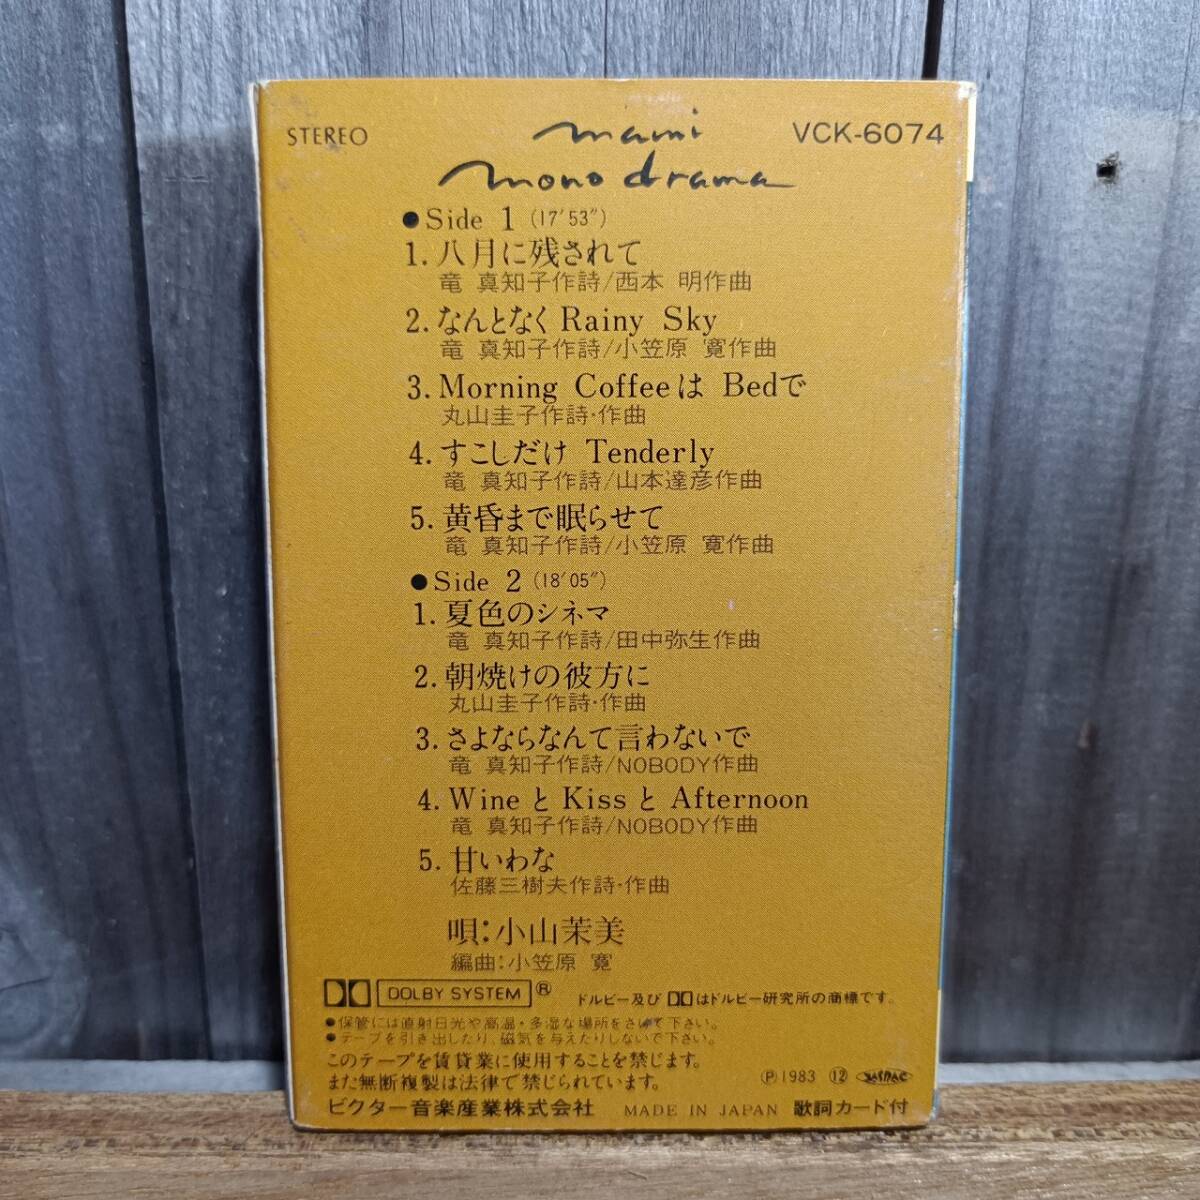 STEREO
mami
mono drama
VCK-6074
●Side 1 (17′53″)
1. 八月に残されて
竜 真知子作詩/西本 明作曲
2. なんとなく Rainy Sky
竜 真知子作詩/小笠原 寛作曲
3. Morning Coffeeは Bedで
丸山圭子作詩・作曲
4. すこしだけ Tenderly
竜 真知子作詩/山本達彦作曲
5. 黄昏まで眠らせて
竜 真知子作詩/小笠原 寛作曲
●Side 2 (18′05″)
1. 夏色のシネマ
竜 真知子作詩/田中弥生作曲
2. 朝焼けの彼方に
丸山圭子作詩・作曲
3. さよならなんて言わないで
竜 真知子作詩/NOBODY作曲
4. Wine と Kiss と Afternoon
竜 真知子作詩/NOBODY作曲
5. 甘いわな
佐藤三樹夫作詩・作曲
唄:小山茉美
編曲:小笠原 寛
DOLBY SYSTEM ® ドルビー及び はドルビー研究所の商標です。
●保管には直射日光や高温・多湿な場所をさけて下さい。
●テープを引き出したり、磁気を与えたりしないで下さい。
このテープを賃貸業に使用することを禁じます。
また無断複製は法律で禁じられています。
Ⓟ1983 ⑫
ビクター音楽産業株式会社 MADE IN JAPAN 歌詞カード付